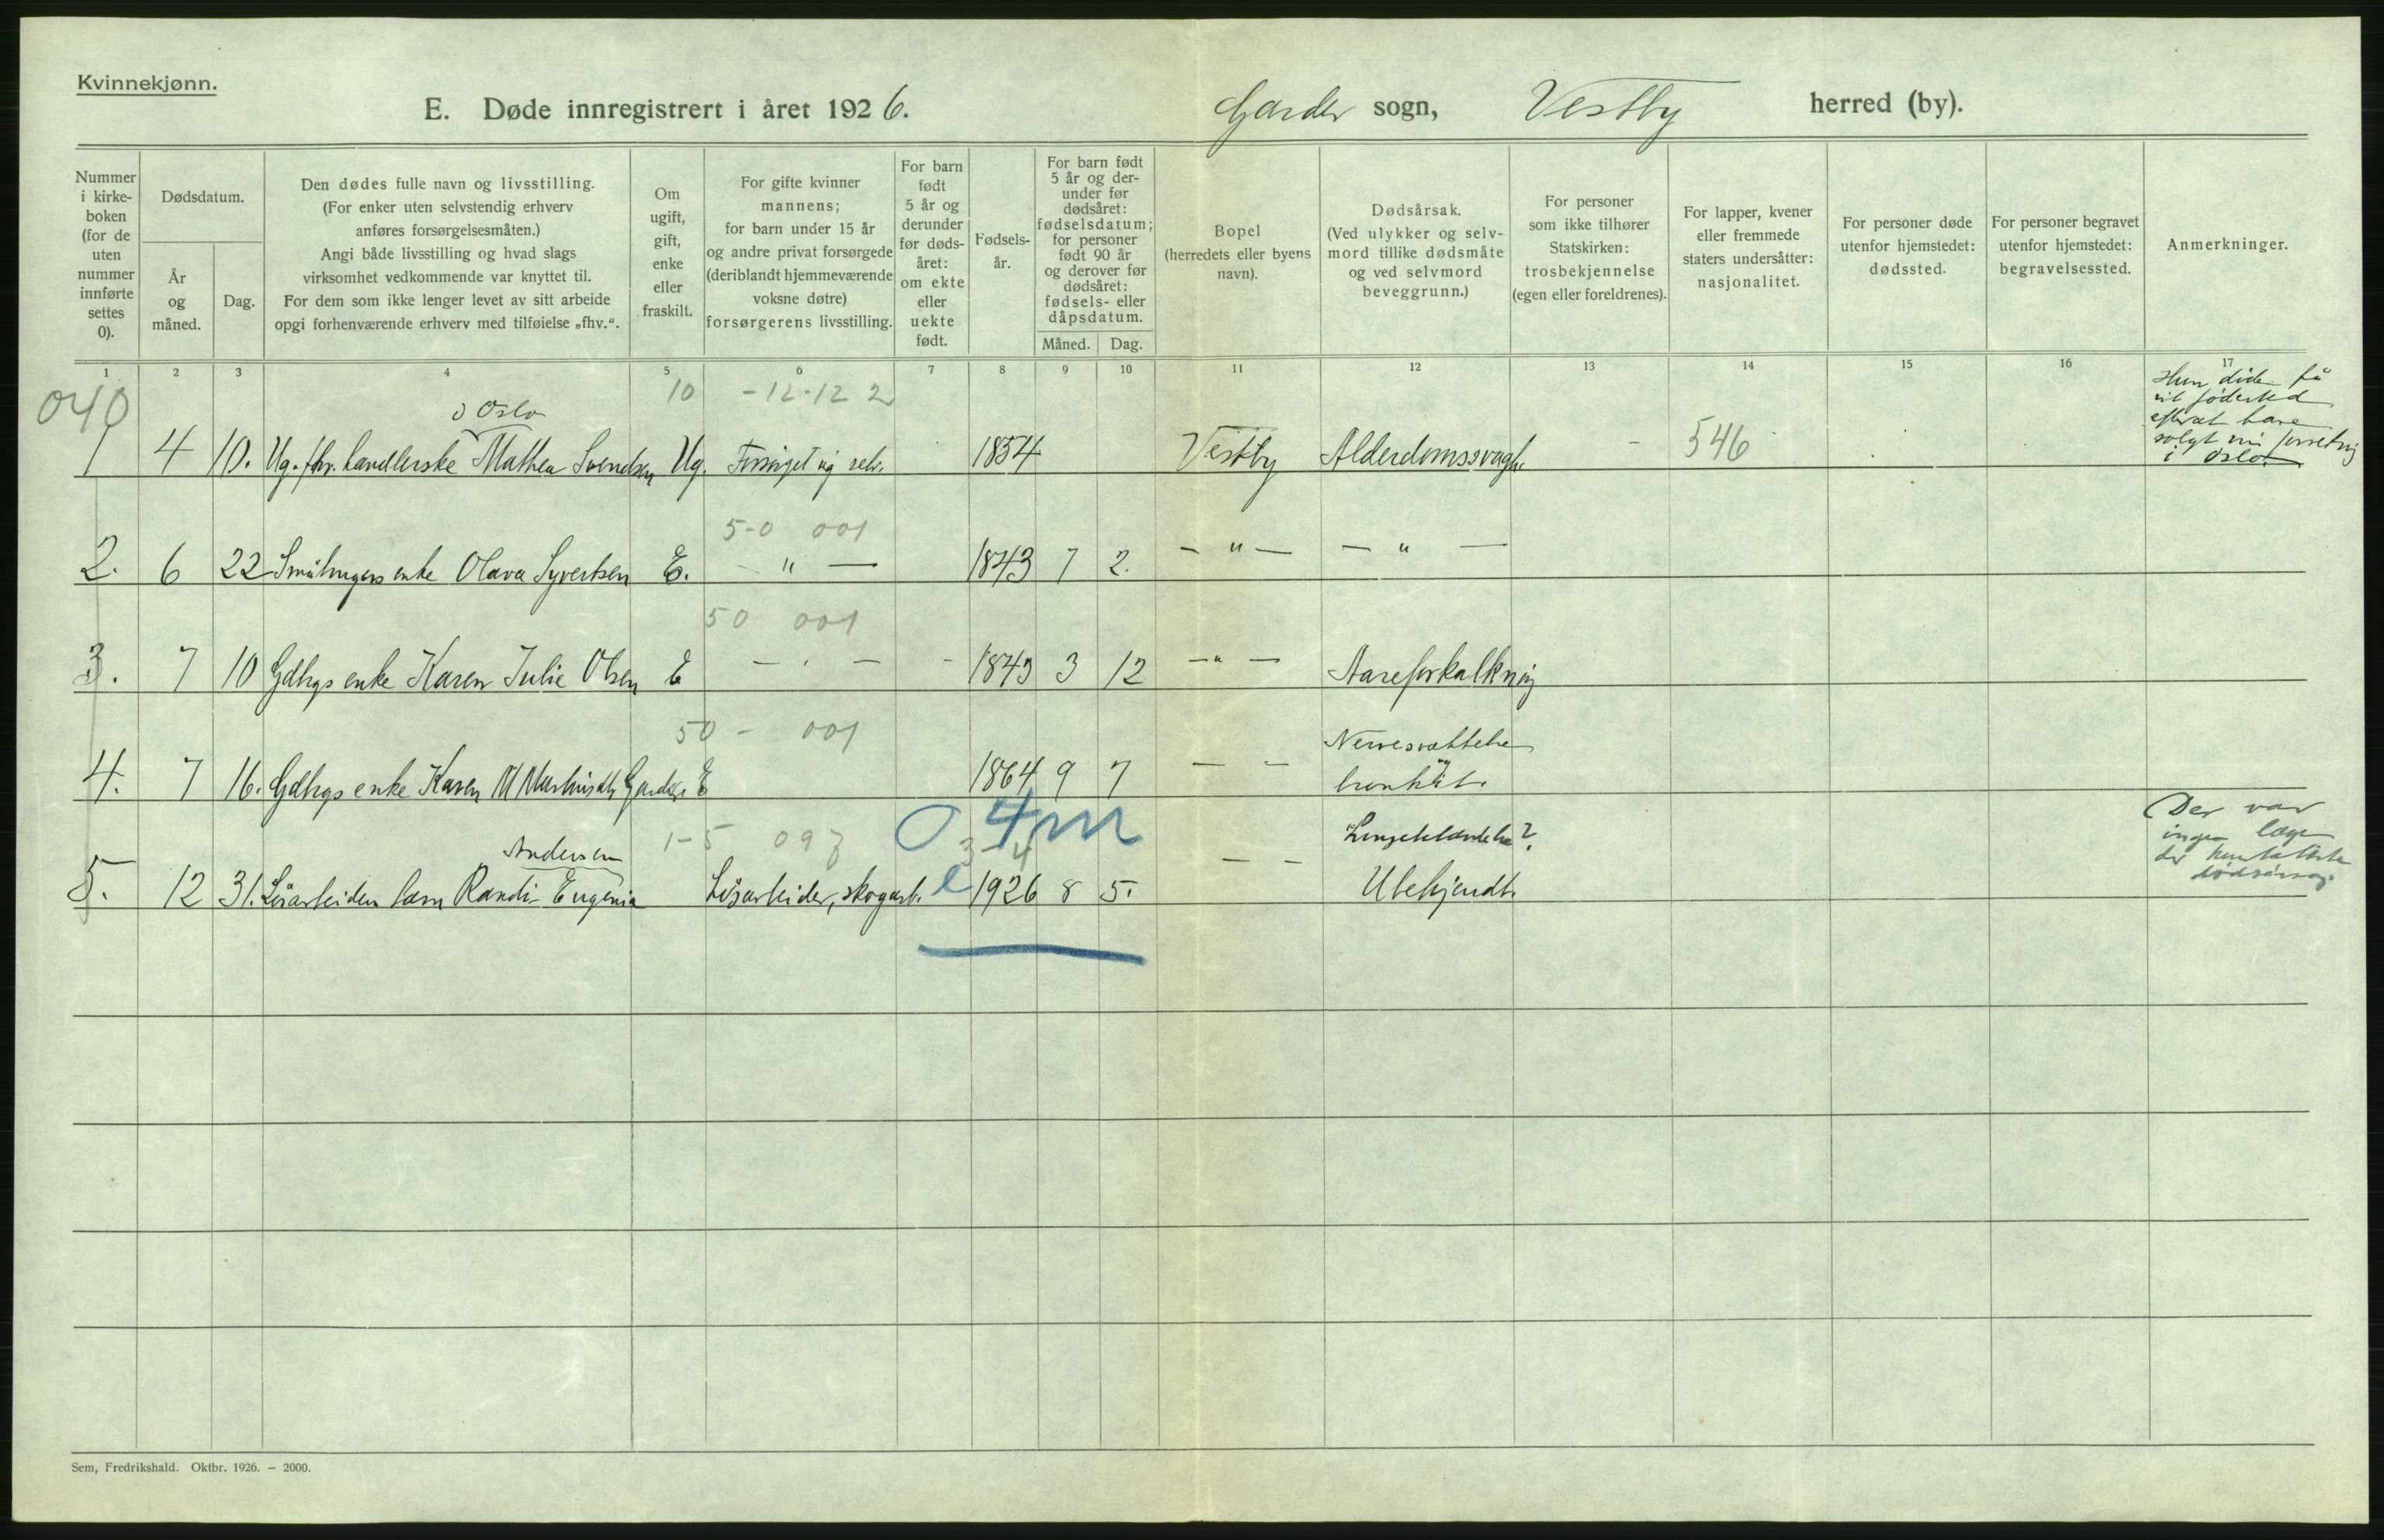 Kvinnekjønn.
E. Døde innregistrert i året 1926. Garder sogn, Vestby herred (by).
Nummer i kirke-boken (for de uten nummer innførte settes 0).
Dødsdatum.
År og måned.
Dag.
Den dødes fulle navn og livsstilling.
(For enker uten selvstendig erhverv
anføres forsørgelsesmåten.)
Angi både livsstilling og hvad slags
virksomhet vedkommende var knyttet til.
For dem som ikke lenger levet av sitt arbeide
opgi forhenværende erhverv med tilføielse „fhv.“.
Om
ugift,
gift,
enke
eller
fraskilt.
For gifte kvinner
mannens;
for barn under 15 år
og andre privat forsørgede
(deriblandt hjemmeværende
voksne døtre)
forsørgerens livsstilling.
For barn
født
5 år og
derunder
før døds-
året:
om ekte
eller
uekte
født.
Fødsels-
år.
For barn født
5 år og der-
under før
dødsåret:
fødselsdatum;
for personer
født 90 år
og derover før
dødsåret:
fødsels- eller
dåpsdatum.
Måned. Dag.
Bopel
(herredets eller byens
navn).
Dødsårsak.
(Ved ulykker og selv-
mord tillike dødsmåte
og ved selvmord
beveggrunn.)
For personer
som ikke tilhører
Statskirken:
trosbekjennelse
(egen eller foreldrenes).
For lapper, kvener
eller fremmede
staters undersåtter:
nasjonalitet.
For personer døde
utenfor hjemstedet:
dødssted.
For personer begravet
utenfor hjemstedet:
begravelsessted.
Anmerkninger.
1 2 3 4 5 6 7 8 9 10 11 12 13 14 15 16 17
040 10 -12-12 2
i Oslo
1 4 10. Ug. fhv. handlerske Mathea Svendsen Ug. Forsørget sig selv. 1854 Vestby Alderdomssvaghe - 546
Hun døde på
sit fødested
efterat have
solgt sin forretnig
i Oslo.
5-0 001
2. 6 22 Småbrugers enke Olava Syvertsen E. - " - 1843 7 2. - " - - " -
50 001
3. 7 10 Gdbrgs enke Karen Julie Olsen E - " - - 1843 3 12 - " - Aareforkalkning
50 - 001
Nervesvækkelse
4. 7 16. Gdbrgs enke Karen M Martinsdtr Garder E 1864 9 7 - - og bronkit.
1-5 097 0 4m
3-4
Andersen
Lungebetændelse?
5. 12 31. Løsarbeiders barn Randi Eugenia Løsarbeider, skogarb. e 1926 8 5. - - Ubekjendt.
Der var
ingen læge
der konstaterte
dødsårsag.
Sem, Fredrikshald. Oktbr. 1926. — 2000.